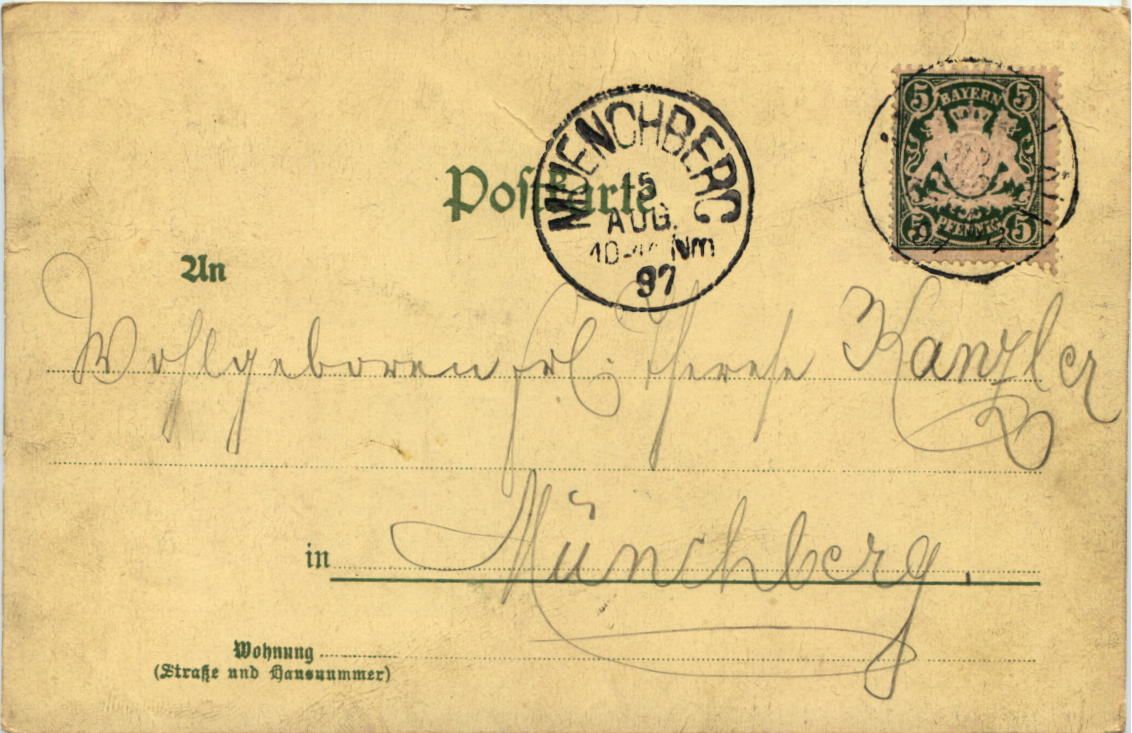 5 BAYERN 5
5 PFENNIG 5
MUENCHBERG
15
AUG.
Nm
97
Postkarte
An
Wohlgeboren Frl. Therese Kanzler
in Münchberg.
Wohnung
(Straße und Hausnummer)